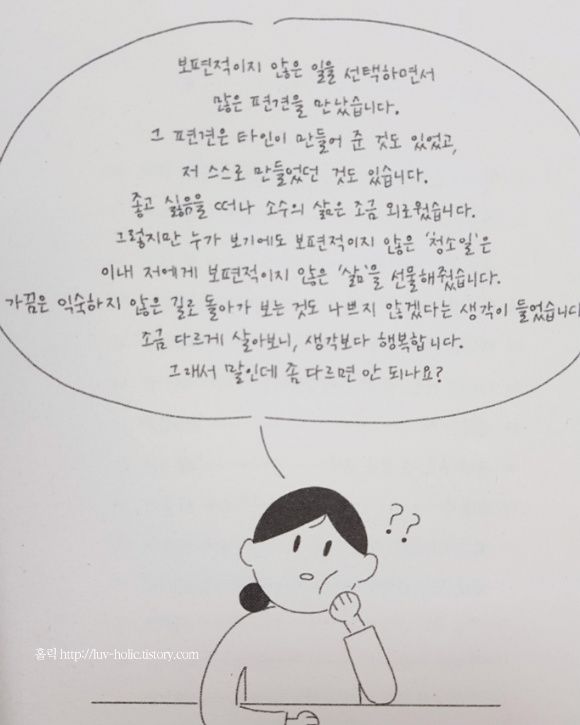 보편적이지 않은 일을 선택하면서
많은 편견을 만났습니다.
그 편견은 타인이 만들어 준 것도 있었고,
저 스스로 만들었던 것도 있습니다.
좋고 싫음을 떠나 소수의 삶은 조금 외로웠습니다.
그렇지만 누가 보기에도 보편적이지 않은 '청소일'은
이내 저에게 보편적이지 않은 '삶'을 선물해줬습니다.
가끔은 익숙하지 않은 길로 돌아가 보는 것도 나쁘지 않겠다는 생각이 들었습니다
조금 다르게 살아보니, 생각보다 행복합니다.
그래서 말인데 좀 다르면 안 되나요?
??
홀릭 http://luv-holic.tistory.com